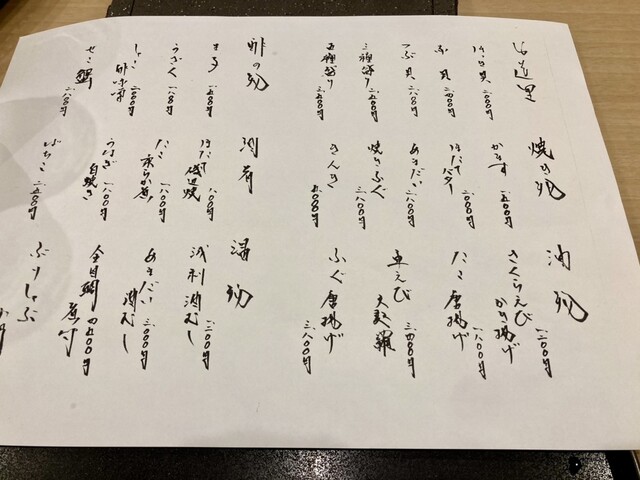 お造里
貝 二、〇〇〇円
貝 二、四〇〇円
つぶ貝 二、八〇〇円
三種盛り 二、五〇〇円
五種盛り 三、五〇〇円
酢の物
一、五〇〇円
うざく 一、八〇〇円
しゃこ
酢味噌 二、〇〇〇円
せこ蟹 二、八〇〇円
焼き物
一、五〇〇円
ほたてバター 二、〇〇〇円
あまだい 二、八〇〇円
焼きふぐ
きんき 五、八〇〇円
酒肴
ほたて
磯辺焼 一、八〇〇円
たこ
柔らか煮 一、八〇〇円
うなぎ
白焼き 一、八〇〇円
ばちこ 二、五〇〇円
油物
さくらえび
かき揚げ 一、二〇〇円
たこ唐揚げ 一、八〇〇円
車えび
天麩羅 三、四〇〇円
ふぐ唐揚げ 三、八〇〇円
温物
浅利酒むし 一、二〇〇円
あまだい
酒むし 三、二〇〇円
金目鯛
煮付 四、五〇〇円
ぶりしゃぶ